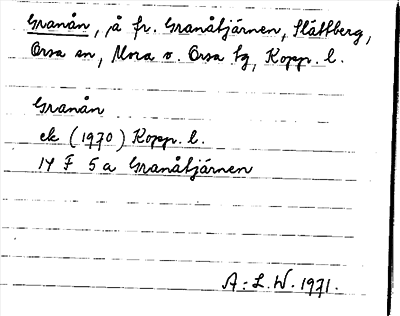 Granån, å fr. Granåtjärnen, Slättberg,
Orsa sn, Mora o. Orsa tg, Kopp. l.
Granån
ek (1970) Kopp. l.
14 F 5 a Granåtjärnen
A-L.W. 1971.